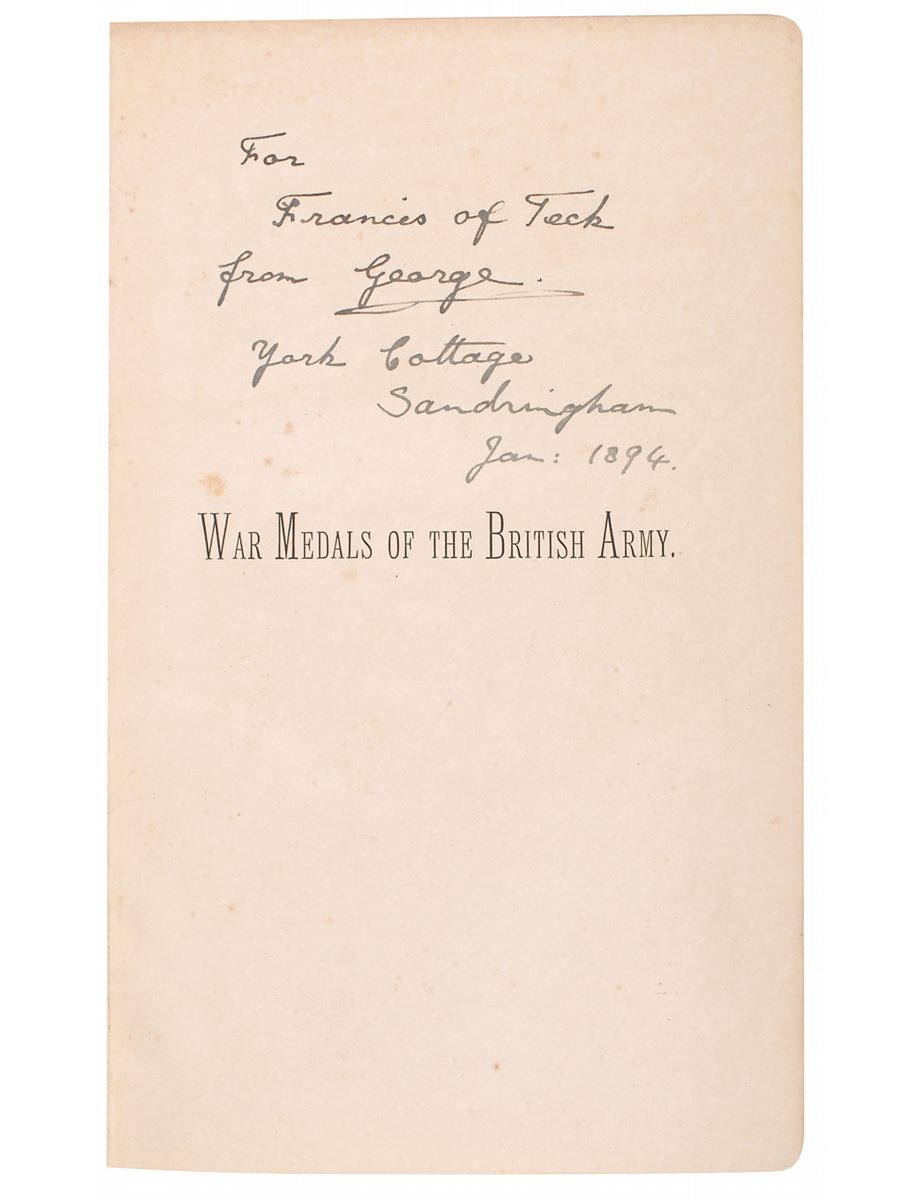 For
Francis of Teck
from George.
York Cottage
Sandringham
Jan: 1894.
War Medals of the British Army.